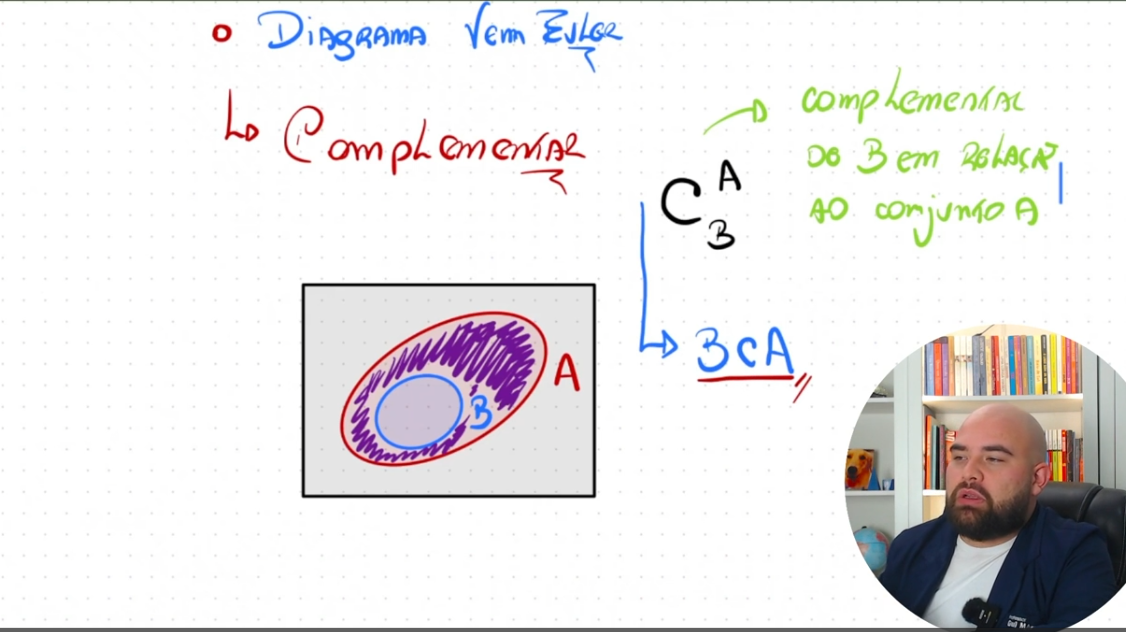 Diagrama Venn Euler
Complementar
C A B
complementar
do B em relação
ao conjunto A
B ⊂ A
A
B